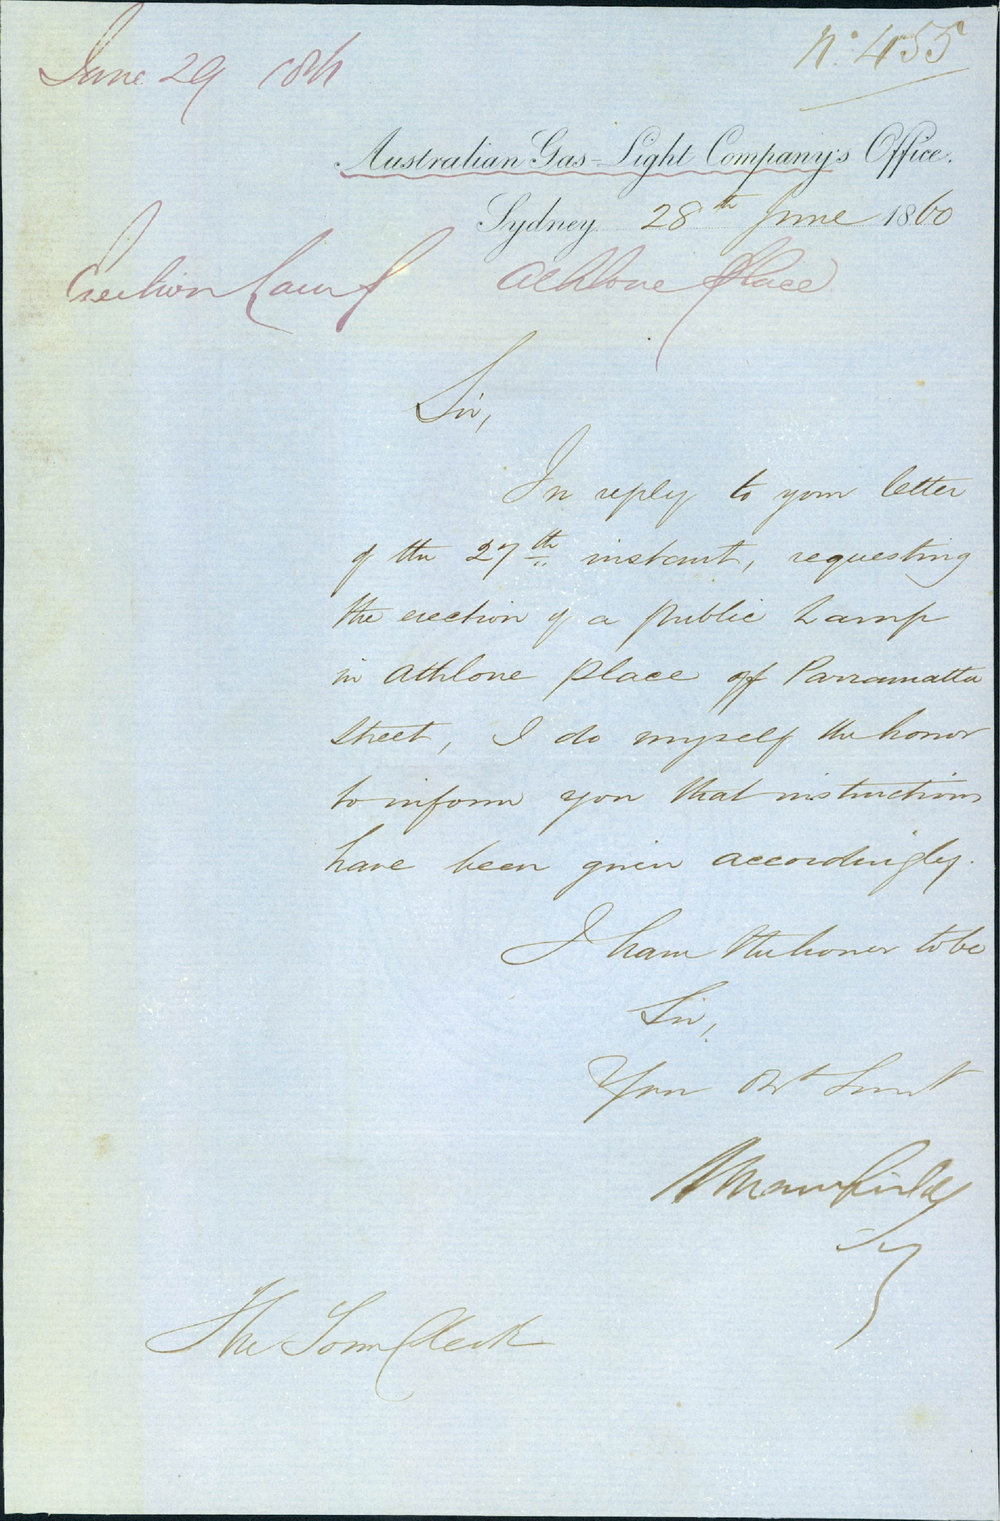 June 29
No. 455
Australian Gas-Light Company's Office.
Sydney 28th June 1860
Erection Lamp Athlone Place
Sir,
In reply to your letter
of the 27th instant, requesting
the erection of a public Lamp
in Athlone Place off Parramatta
Street, I do myself the honor
to inform you that instructions
have been given accordingly.
I have the honor to be
Sir,
Your Obt Servt
Mansfield
Sy
The Town Clerk